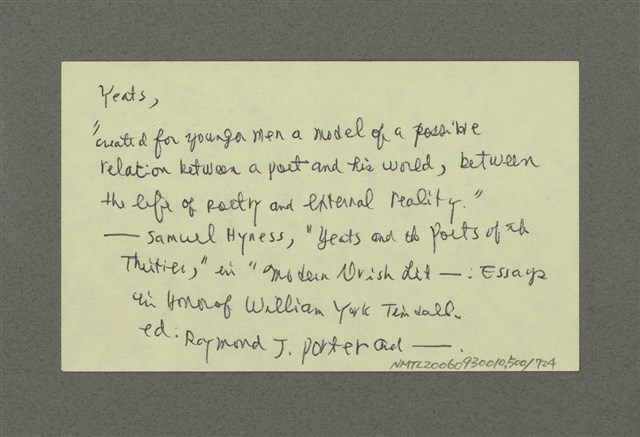 Yeats,
"created for younger men a model of a possible
relation between a poet and his world, between
the life of poetry and external reality."
— Samuel Hyness, "Yeats and the Poets of the
Thirties," in "Modern Irish Lit —: Essays
in Honor of William York Tindall.
ed. Raymond J. Porter and —.
NMTL20060930010,500/724